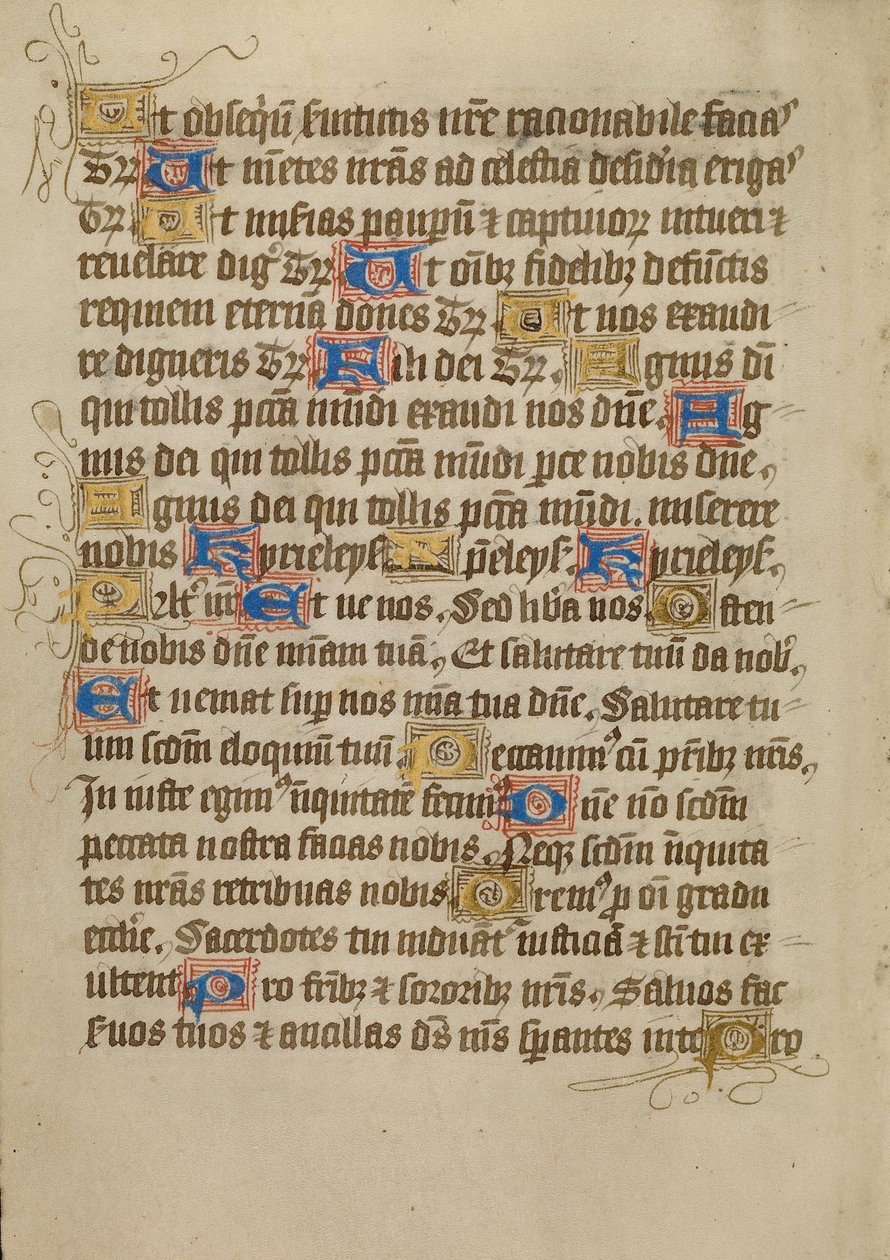 Ut obseq̄ū ẜuitutis nr̄e racionabile facia⁹
T᷒ꝝ Ut m̄etes nr̄as ad celestia desid̾ia eriga⁹
T᷒ꝝ Ut miẜias paup̱ū ⁊ captiuioꝝ intueri ⁊
reuelare dig᷒ T᷒ꝝ Ut oīb⁊ fidelib⁊ defūctis
requiem eternā dones T᷒ꝝ Ut nos exaudi
re digneris T᷒ꝝ Fili dei T᷒ꝝ, Agnus dī
qui tollis pctā mūdi exaudi nos dn̄e, Ag
nus dei qui tollis pctā mūdi ꝑce nobis dn̄e,
Agnus dei qui tollis pctā mūdi. miserere
nobis Kyrieleyẜ X p̄eleyẜ. Kyrieleyẜ.
Et ne nos, Sed lib̾a nos Osten
de nobis dn̄e mīam tuā, Et salutare tuū da nob᷒,
Et ueniat suꝑ nos mīa tua dn̄e, Salutare tu
um scd̄m eloquiū tuū Peccauim⁹ cū pr̄ib⁊ nr̄is,
In iuste egim⁹ īiquitatē fecim⁹ Dn̄e nō scd̄m
peccata nostra facias nobis, Neq⁊ scd̄m īiquita
tes nr̄as retribuas nobis Orem⁹ ꝓ oī gradu
eccl̾ie, Sacerdotes tui induāt᷒ iusticiā ⁊ scī tui ex
ultent Pro fr̄ib⁊ ⁊ sororib⁊ nr̄is, Saluos fac
ẜuos tuos ⁊ ancillas ds̄ ms̄ sꝑantes inte Pro